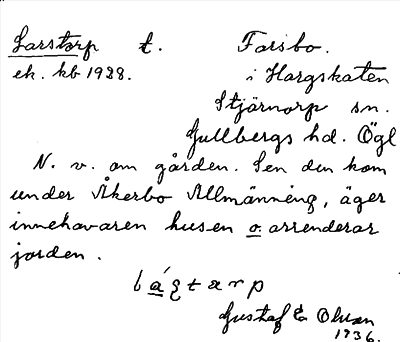 Larstorp t. Farsbo.
ek. kb 1928. i Hargskaten
Stjärnorp sn.
Gullbergs hd. Ögl
N. v. om gården. Sen den kom
under Åkerbo Allmänning, äger
innehavaren husen o. arrenderar
jorden.
Gustaf E Olsson
1936.